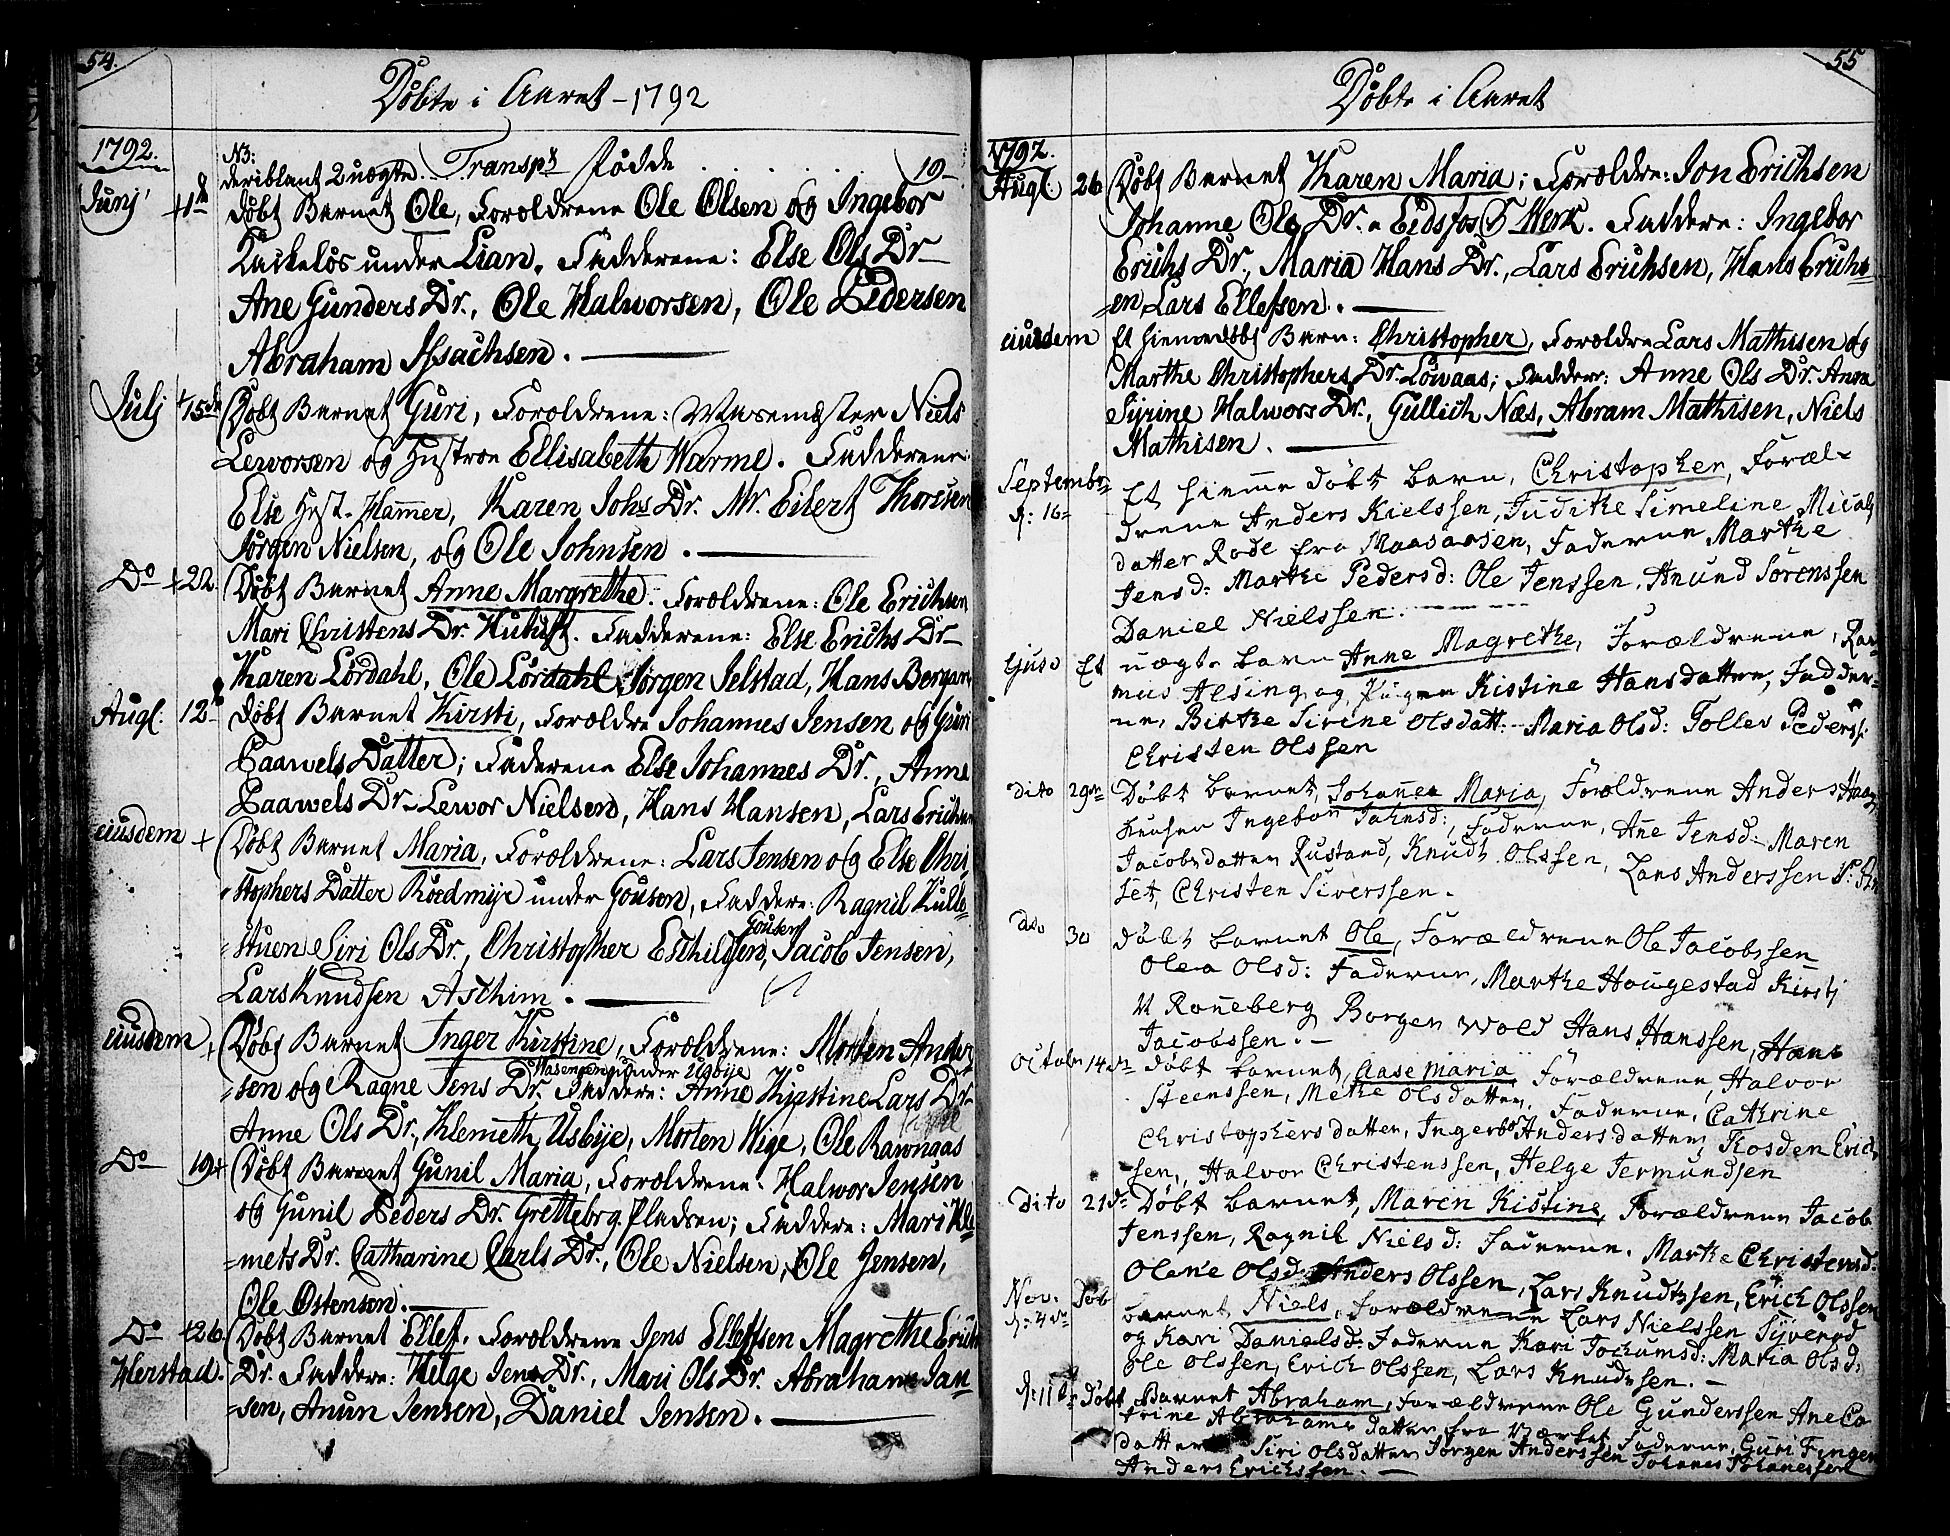 54.
Döbte i Aaret - 1792
1792. NB: deriblant 2 uægte. Transpt födde 19
Junj 1te döbt Barnet Ole, Forældrene Ole Olsen og Ingebor
under Lian. Fadderene: Else Ols Dr
Ane Gunders Dr., Ole Halworsen, Ole Pedersen
Abraham Issachsen.
Julj 15de Döbt Barnet Guri, Forældrene: Niels
Leworsen og Hustroe Ellisabeth Warme. Fadderene
Else Hust. Hammer, Karen Johs Dr. Mr. Eilert Thoresen
Jörgen Nielsen, og Ole Johnsen.
Do 22 Döbt Barnet Anne Margrethe. Forældrene: Ole Erichsen
Mari Christens Dr. Fadderene: Else Erichs Dr
Karen Lördahl, Ole Lördahl, Jörgen Selstad, Hans Bergan
Augt: 12te döbt Barnet Kirsti, Forældre Johannes Jensen og Guri
Paawels Datter; Faderene Else Johannes Dr., Anne
Paawels Dr Lewor Nielsen, Hans Hansen, Lars Erichsen
eiusdem Döbt Barnet Maria, Forældrene: Lars Jensen og Else Chri-
stophers Datter Röedmyr under Gousen, Faddere: Ragnil Kulle-
stuen Siri Ols Dr., Christopher Eschildsen Gousen, Jacob Jensen,
Lars Knudsen Aschim.
eiusdem Döbt Barnet Inger Kirstine, Forældrene: Morten Ander-
sen og Ragne Jens Dr. Wasengen under Usbye Faddere: Anne Kirstine Lars Dr
Anne Ols Dr., Klemeth Usbye, Morten Wige, Ole Rawnaas
Do 19 Döbt Barnet Gunil Maria, Forældrene: Halwor Jensen
og Gunil Peders Dr. Grettebrg. Pladsen; Faddere: Mari Kle-
mets Dr. Catharine Carls Dr., Ole Nielsen, Ole Jensen,
Ole Östensen.
Do 26. Döbt Barnet Ellef. Forældrene Jens Ellefsen Magrethe Erichs
Herstad. Dr. Faddere: Helge Jens Dr., Mari Ols Dr. Abraham Jan-
sen, Anun Jensen, Daniel Jensen.
55
Döbte i Aaret
1792.
Augt 26 Döbt Barnet Karen Maria; Forældre: Jon Erichsen
Johanne Ols Dr. Eidsfos Werk. Faddere: Ingebor
Erichs Dr., Maria Hans Dr., Lars Erichsen, Hans Erichs
en Lars Ellefsen.
eiusdem Et hiemedöbt Barn: Christopher, Forældre Lars Mathisen og
Marthe Christophers Dr. Löwaas; Faddere: Anne Ols Dr. Anna
Syrine Halwors Dr., Gullich Næs, Abram Mathisen, Niels
Mathisen.
September d: 16 Et hiemme döbt barn, Christopher, Foræl-
drene Anders Kielssen, Judithe Simeline Micals
datter Rode fra Maasaasen, Faderne Marthe
Jensd: Marthe Pedersd: Ole Jenssen, Anund Sörenssen
Daniel Nielssen.
Ejusd Et uægte barn Anne Magrethe, Forældrene, Ras-
mus Alsing og Pigen Kistine Hansdatter, Fadder-
ne, Birthe Sirine Olsdatt. Maria Olsd: Tollev Pederss:
Christen Olssen
dito 29n Döbt barnet, Johannea Maria, Forældrene Anders Haag
Ingebor Johnsd:, Faderne, Ane Jensd Maren
Jacobsdatter Rustand, Knudt Olssen, Lars Anderssen
set, Christen Siverssen.
dito 30 döbt barnet Ole, Forældrene Ole Jacobssen
Olea Olsd: Faderne, Marthe Hougestad Kirsti
Ronneberg Borgen Wold Hans Hanssen, Hans
Jacobssen.
October 14de döbt barnet, Aasemaria, Forældrene, Halvor
Steenssen, Methe Olsdatter, Faderne, Cathrine
Christophersdatter, Ingerbor Andersdatter, Erich
sen, Halvor Christenssen, Helge Jermundsen
dito 21de Döbt barnet, Maren Kistine, Forældrene Jacob
Jenssen, Ragnil Nielsd: Faderne. Marthe Christensd:
Olene Olsd. Anders Olssen, Lars Knudtssen, Erich Olssen
Nov: d: 4de Döb barnet Niels, Forældrene Lars Nielssen
og Kari Danielsd: Faderne Kari Jochumsd: Maria Olsd:
Ole Olssen, Erich Olssen, Lars Knudssen.
d: 11de Döbt Barnet Abraham, Forældrene Ole Gunderssen Ane Ca
trine Abrahams datter fra Værket Faderne, Guri Finger
datter Siri Olsdatter Jörgen Anderssen Johanes Johanessen
Anders Erichssen.